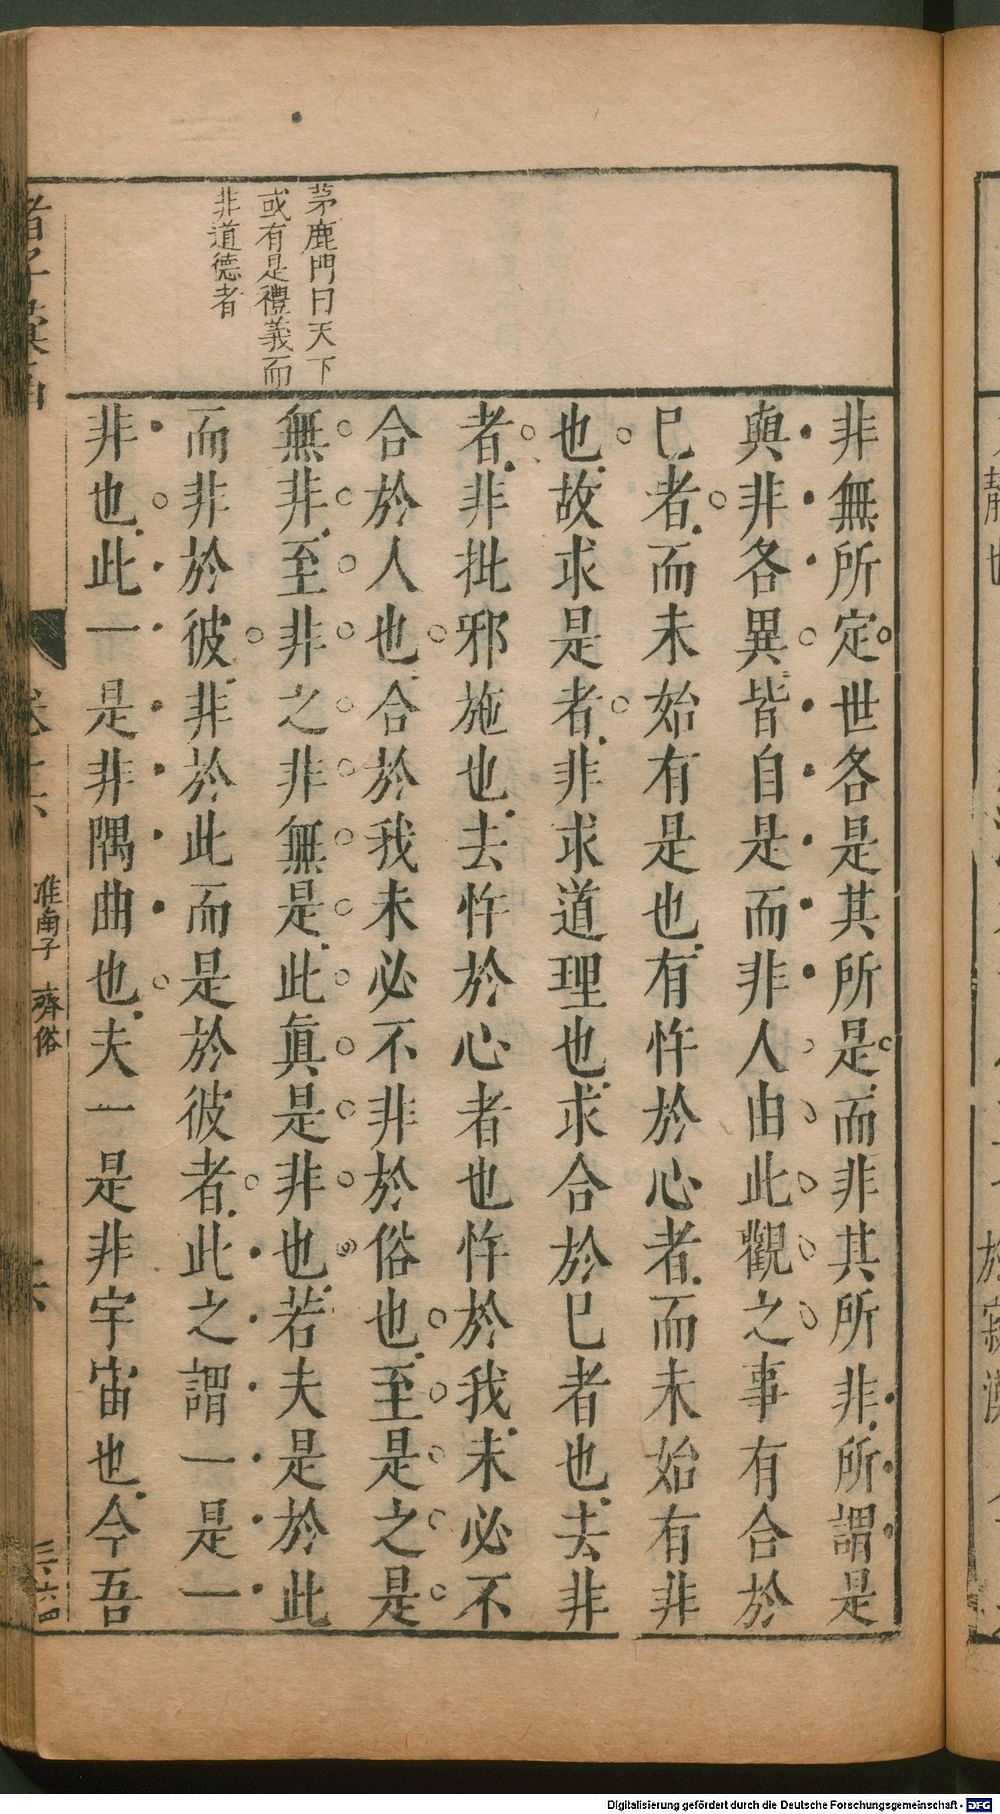 茅鹿門曰天下
或有是禮義而
非道德者
非無所定世各是其所是而非其所非所謂是
與非各異皆自是而非人由此觀之事有合於
已者而未始有是也有忤於心者而未始有非
也故求是者非求道理也求合於已者也去非
者非批邪施也去忤於心者也忤於我未必不
合於人也合於我未必不非於俗也至是之是
無非至非之非無是此眞是非也若夫是於此
而非於彼非於此而是於彼者此之謂一是一
非也此一是非隅曲也夫一是非宇宙也今吾
淮南子 齊俗
Digitalisierung gefördert durch die Deutsche Forschungsgemeinschaft - DFG